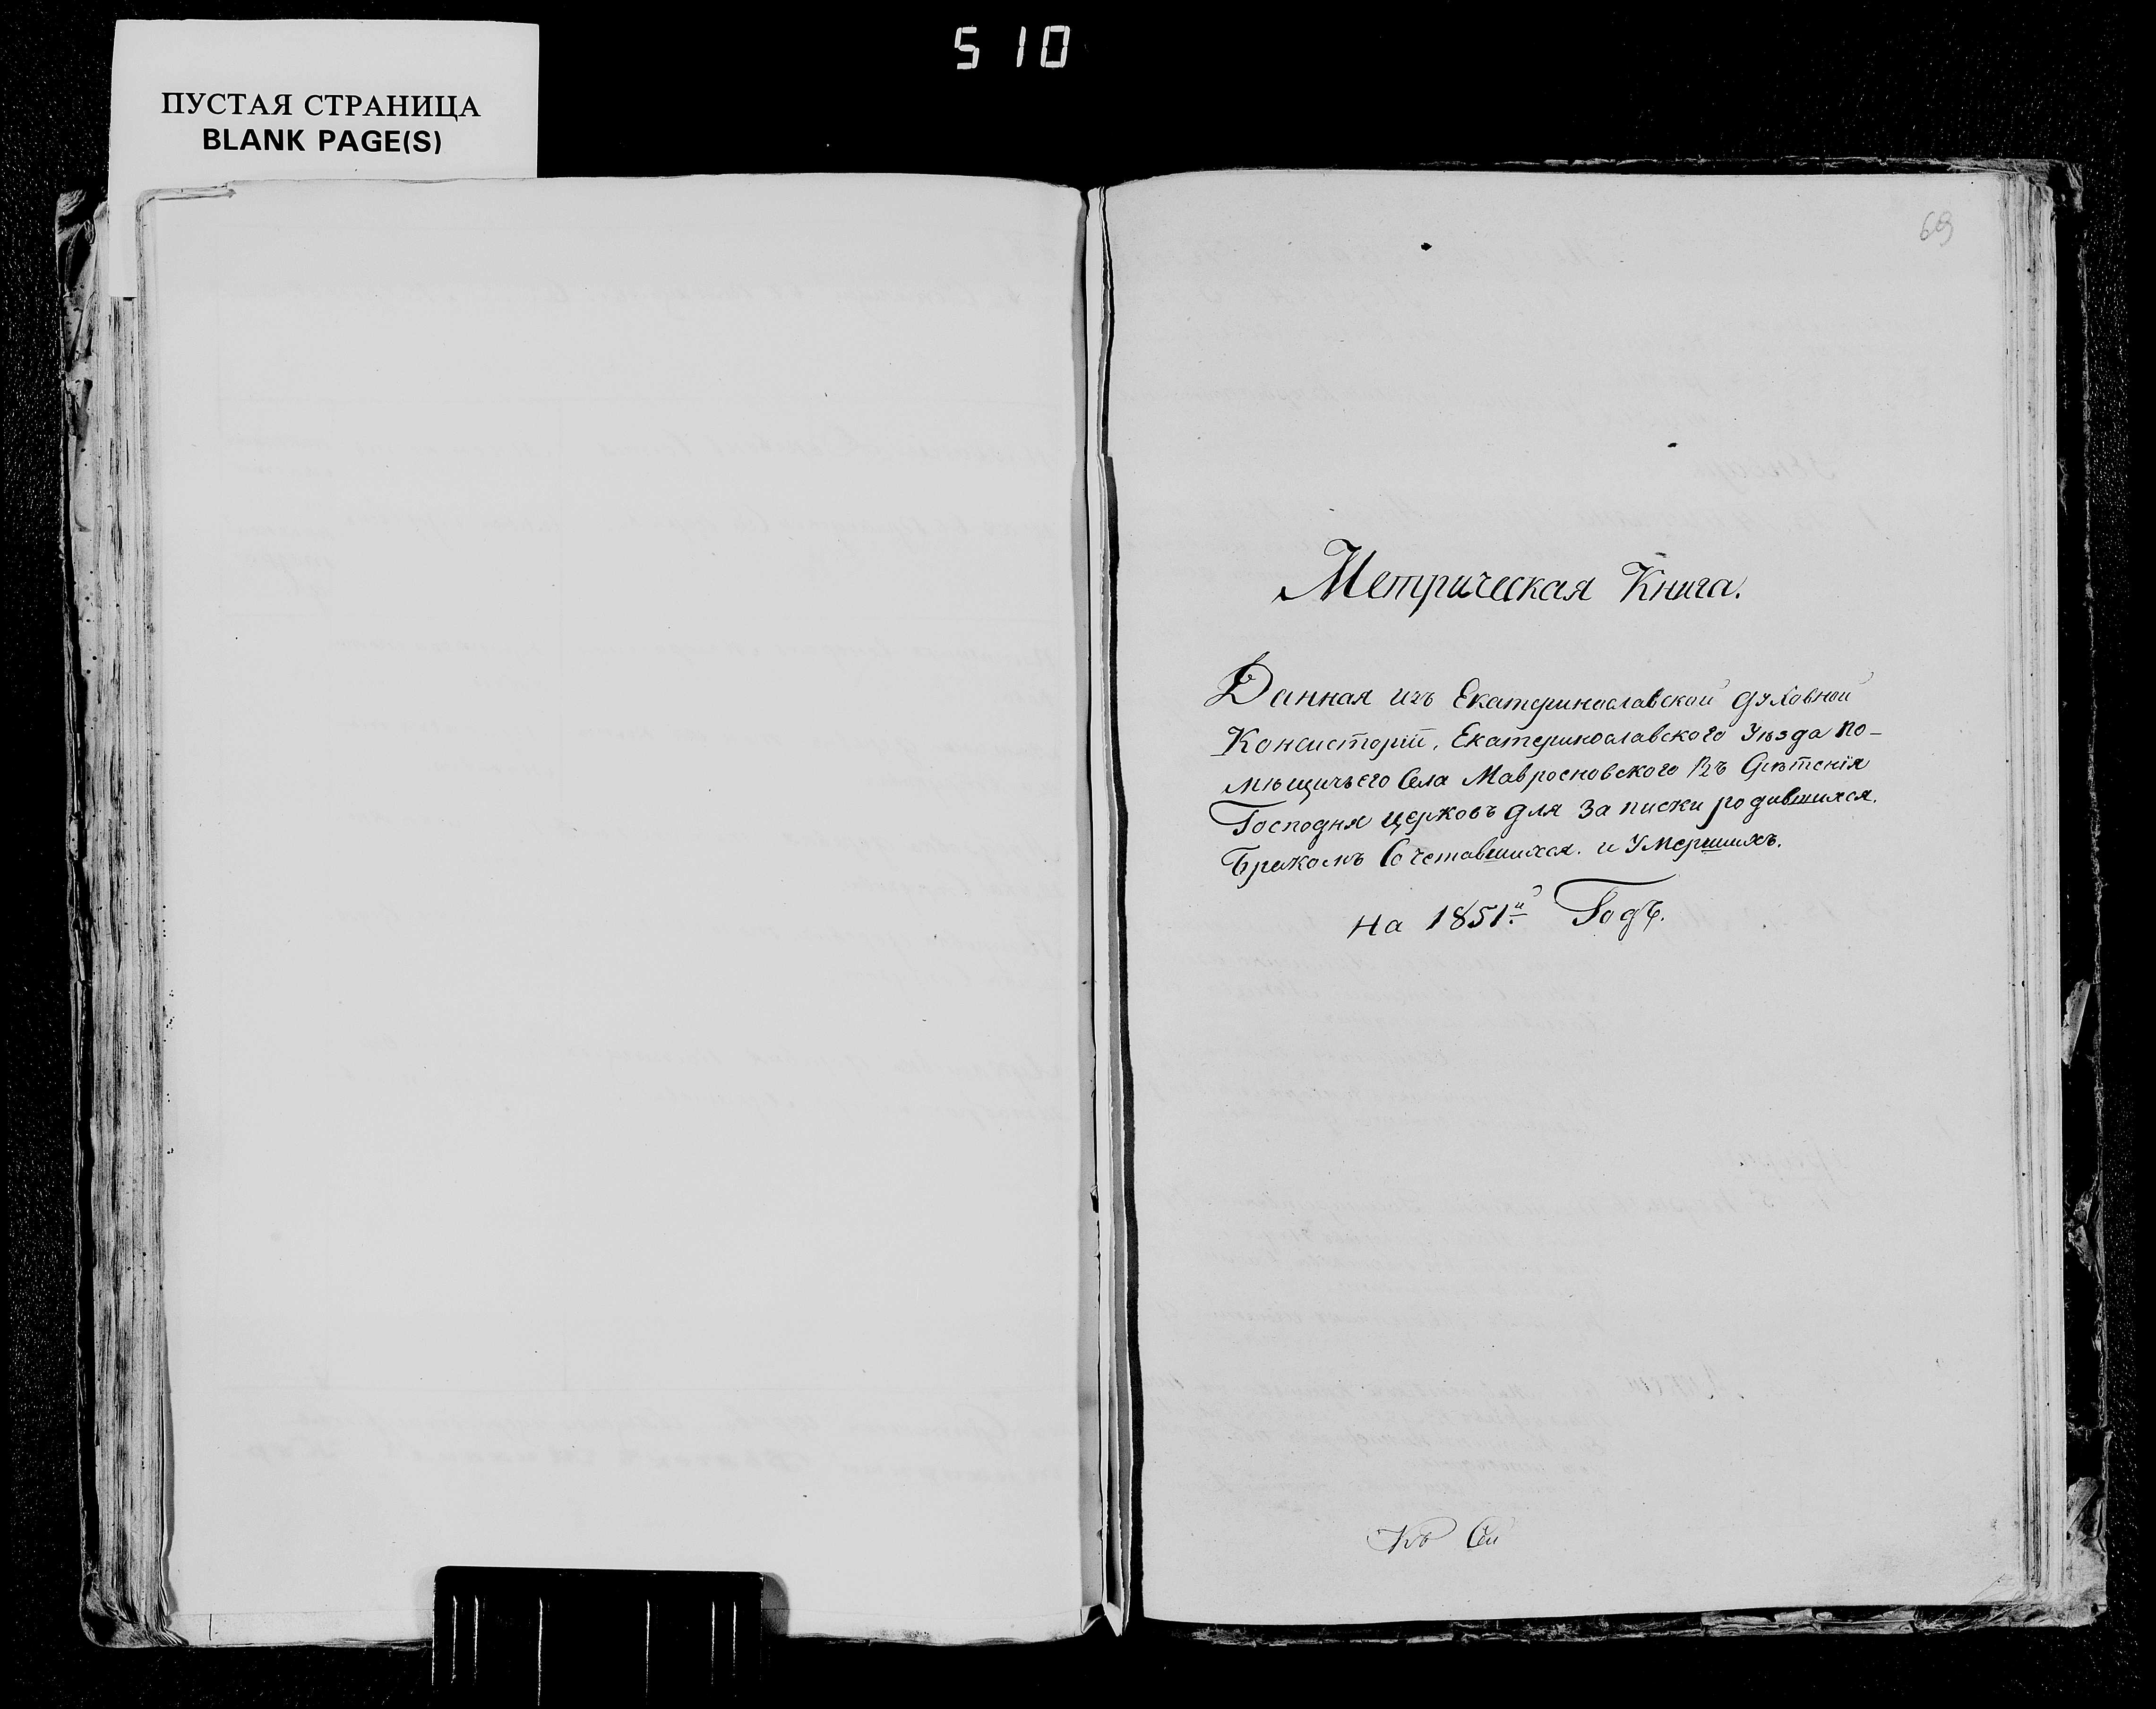 510
ПУСТАЯ СТРАНИЦА
BLANK PAGE(S)
69
Метрическая Книга.
Данная изъ Екатеринославской духовной
Консисторіи, Екатеринославского Уѣзда по-
мѣщичьего Села Мавросновского въ Срѣтенія
Господня церковъ для записки родившихся.
Бракомъ Сочетавшихся. и Умершихъ.
на 1851й Годъ.
Къ